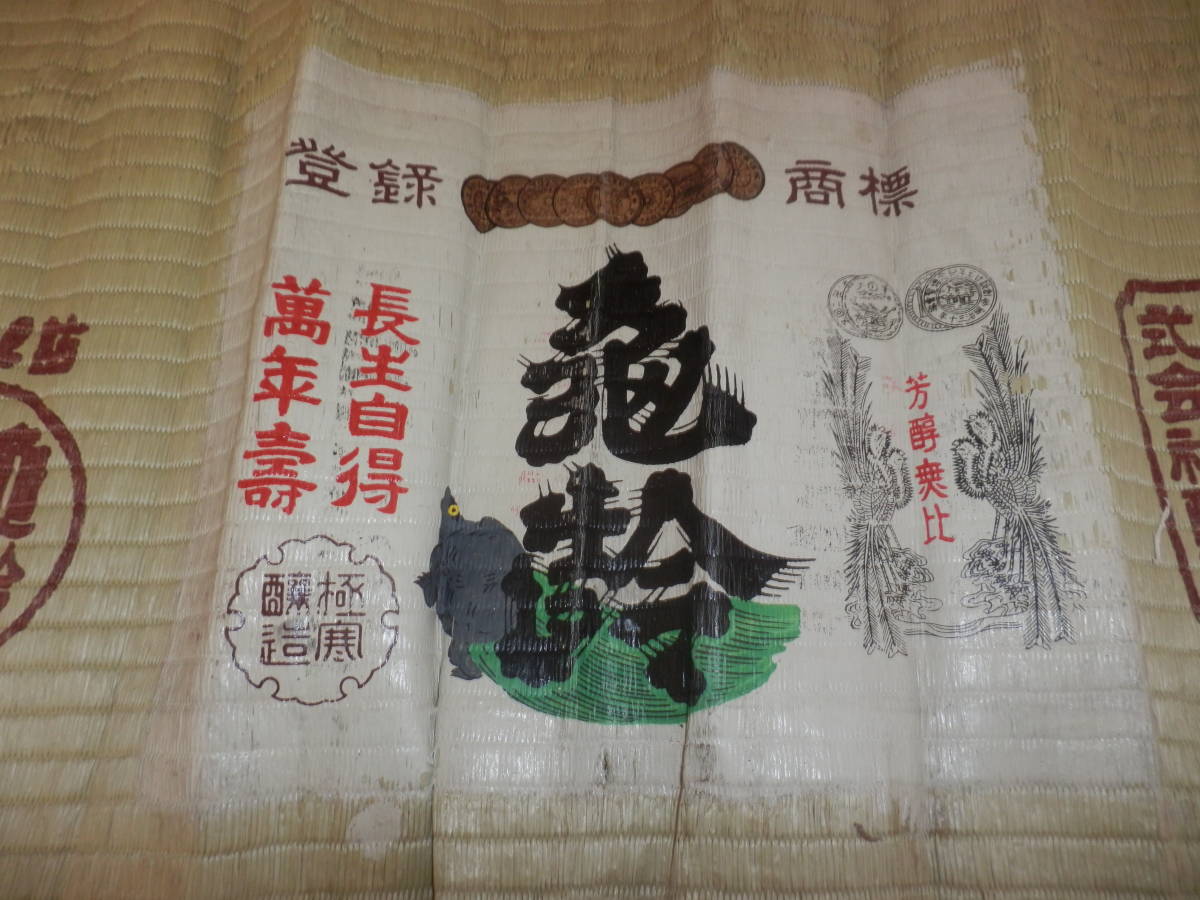 登録 商標
亀齢
芳醇無比
長生自得
萬年壽
極寒
醸造
式会社